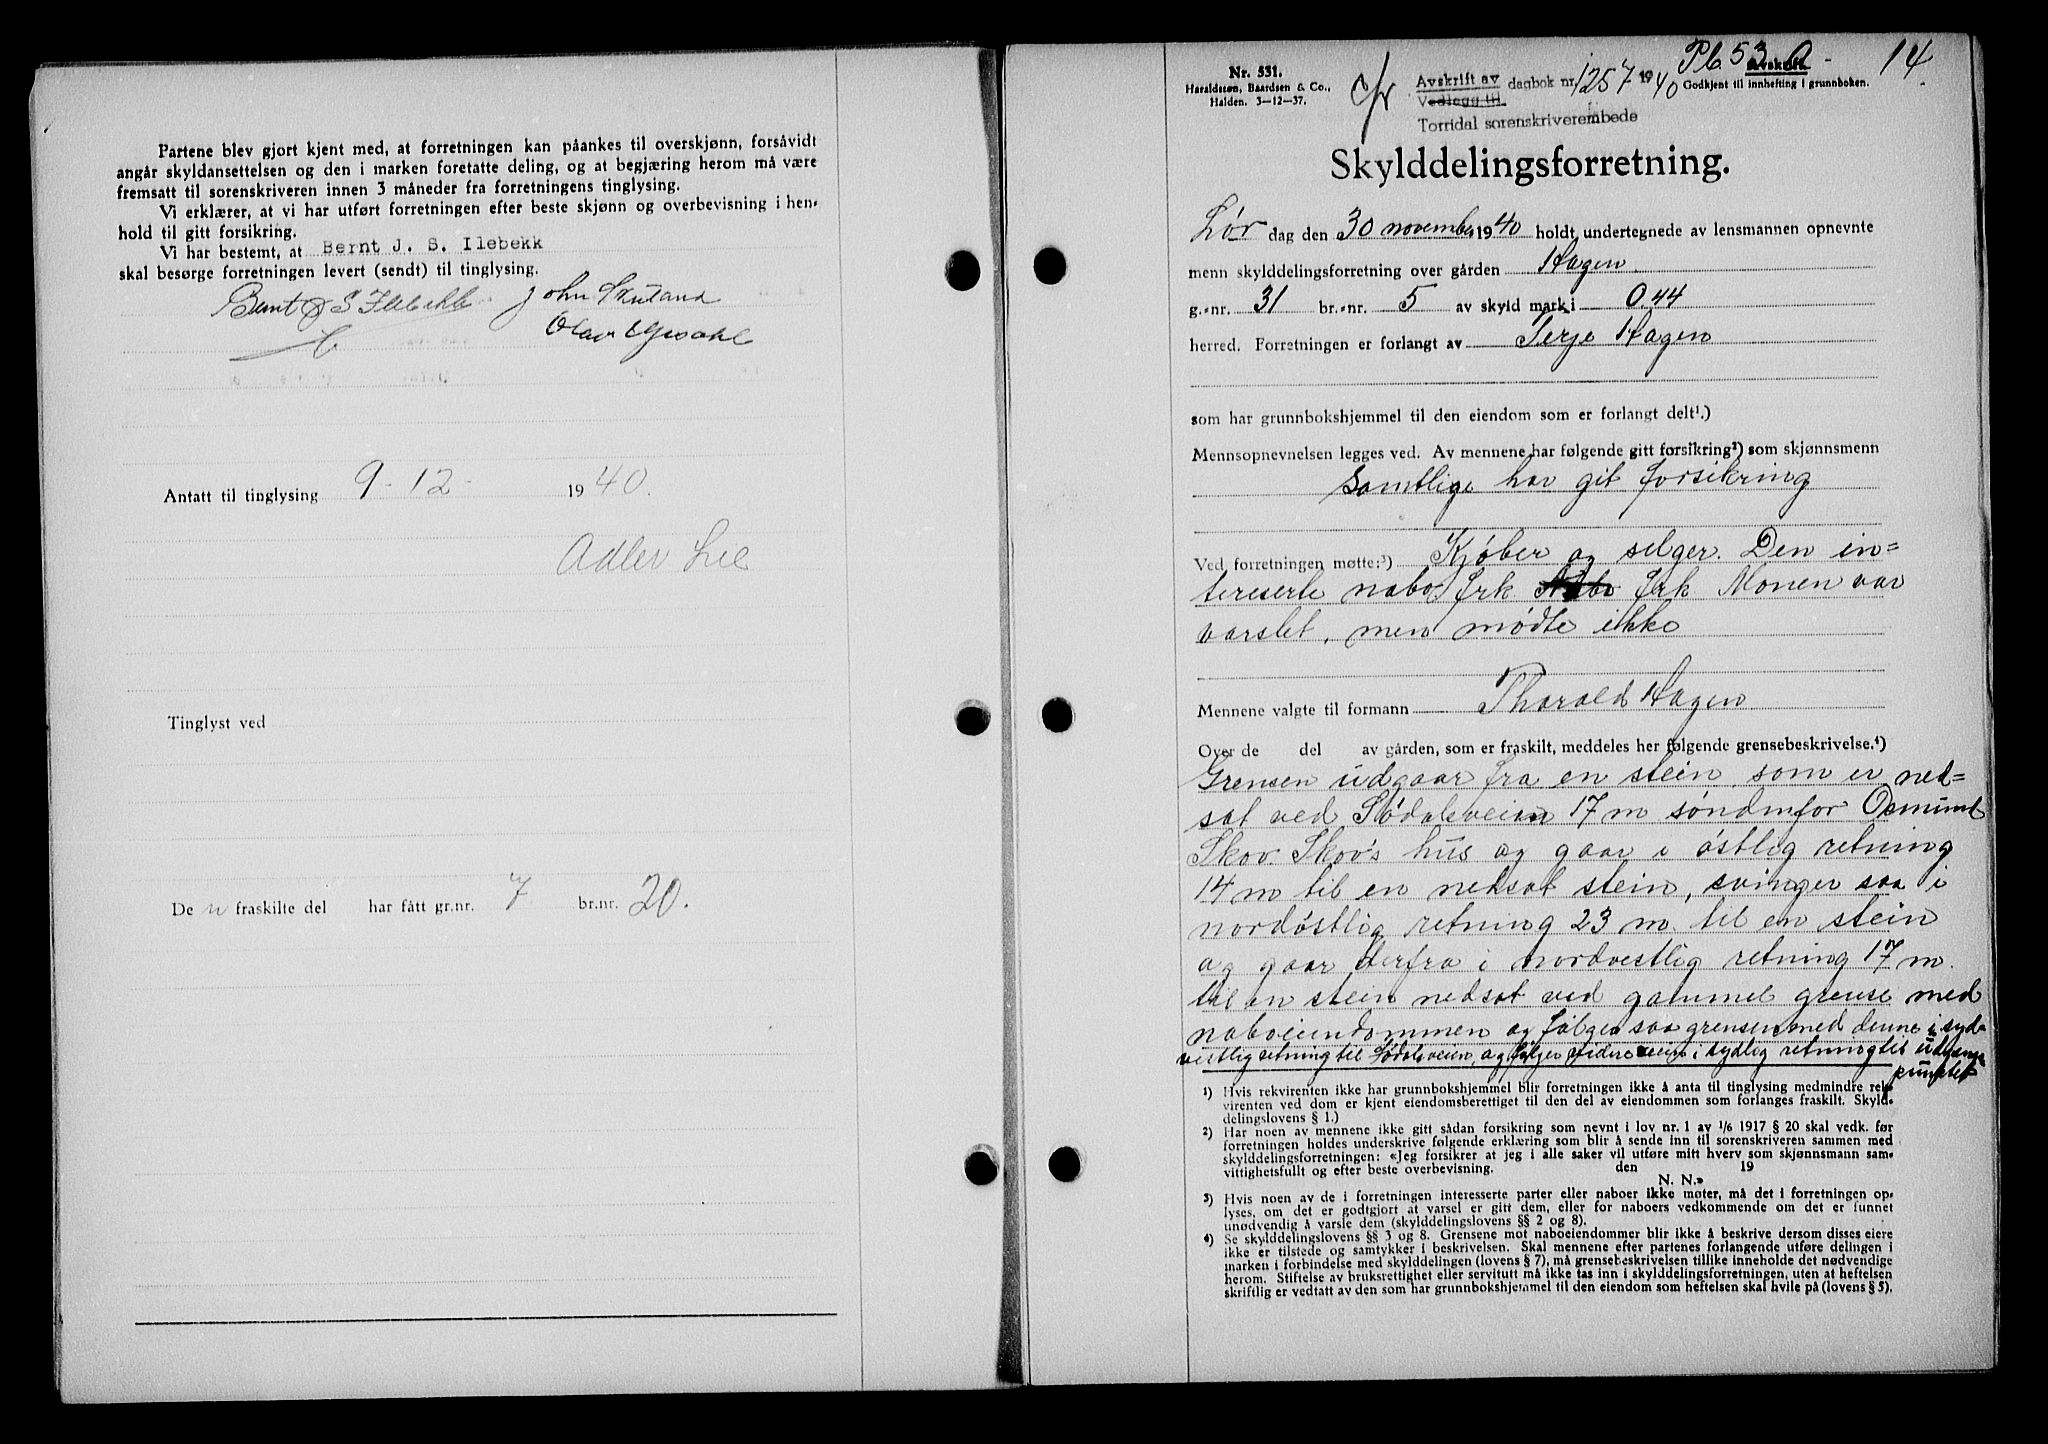 Partene blev gjort kjent med, at forretningen kan påankes til overskjønn, forsåvidt
angår skyldansettelsen og den i marken foretatte deling, og at begjæring herom må være
fremsatt til sorenskriveren innen 3 måneder fra forretningens tinglysing.
Vi erklærer, at vi har utført forretningen efter beste skjønn og overbevisning i hen-
hold til gitt forsikring.
Vi har bestemt, at Bernt J. S. Ilebekk
skal besørge forretningen levert (sendt) til tinglysing.
Bernt J S Ilebekk John Skuland
Olav
Antatt til tinglysing 9-12- 1940.
Adler Lie
Tinglyst ved
De n fraskilte del har fått gr.nr. 7 br.nr. 20.
Nr. 531.
Haraldstøn, Baardsen & Co.,
Halden. 3-12-37.
Avskrift av
Vedlegg til dagbok nr. 1257 1940
Torridal sorenskriverembede
Pb 53 A- 14
Avskrift
Godkjent til innhefting i grunnboken.
Skylddelingsforretning.
Lør dag den 30 november 1940 holdt undertegnede av lensmannen opnevnte
menn skylddelingsforretning over gården Hagen
g.-nr. 31 br.-nr. 5 av skyld mark i 0.44
herred. Forretningen er forlangt av Terje Hagen
som har grunnbokshjemmel til den eiendom som er forlangt delt¹.)
Mennsopnevnelsen legges ved. Av mennene har følgende gitt forsikring²) som skjønnsmenn
Samtlige har git forsikring
Ved forretningen møtte:³) Kjøber og selger. Den in=
tereserte nabo frk frk Monen var
varslet, men mødte ikke
Mennene valgte til formann Tharald Hagen
Over de del av gården, som er fraskilt, meddeles her følgende grensebeskrivelse.⁴)
Grensen udgaar fra en stein som er ned=
sat ved Sødalsveien 17 m søndenfor Osmund
Skov Skov's hus og gaar i østlig retning
14 m til en nedsat stein, svinger saa i
nordøstlig retning 23 m. til en stein
og gaar derfra i nordvestlig retning 17 m.
til en stein nedsat ved gammel grense med
naboeiendommen og følger saa grensen med denne i syd-
vestlig retning til Sødalsveien, og følger videre veien i sydlig retning til udgangs
punktet
1) Hvis rekvirenten ikke har grunnbokshjemmel blir forretningen ikke å anta til tinglysing medmindre rek-
virenten ved dom er kjent eiendomsberettiget til den del av eiendommen som forlanges fraskilt. Skyld-
delingslovens § 1.)
2) Har noen av mennene ikke gitt sådan forsikring som nevnt i lov nr. 1 av 1/6 1917 § 20 skal vedk. før
forretningen holdes underskrive følgende erklæring som blir å sende inn til sorenskriveren sammen med
skylddelingsforretningen: «Jeg forsikrer at jeg i alle saker vil utføre mitt hverv som skjønnsmann sam-
vittighetsfullt og efter beste overbevisning. den 19
N. N.»
3) Hvis noen av de i forretningen interesserte parter eller naboer ikke møter, må det i forretningen op-
lyses, om det er godtgjort at varsel er gitt dem, eller for naboers vedkommende om det er funnet
unødvendig å varsle dem (skylddelingslovens §§ 2 og 8).
4) Se skylddelingslovens §§ 3 og 8. Grensene mot naboeiendommer blir ikke å beskrive dersom disses eiere
ikke er tilstede og samtykker i beskrivelsen. Skal mennene efter partenes forlangende utføre delingen i
marken i forbindelse med skylddelingen (lovens § 7), må grensebeskrivelsen tillike inneholde det nødvendige
herom. Stiftelse av bruksrettighet eller servitutt må ikke tas inn i skylddelingsforretningen, uten at heftelsen
skriftlig er vedtatt av den som har grunnbokshjemmel til den eiendom som heftelsen skal hvile på (lovens § 5).